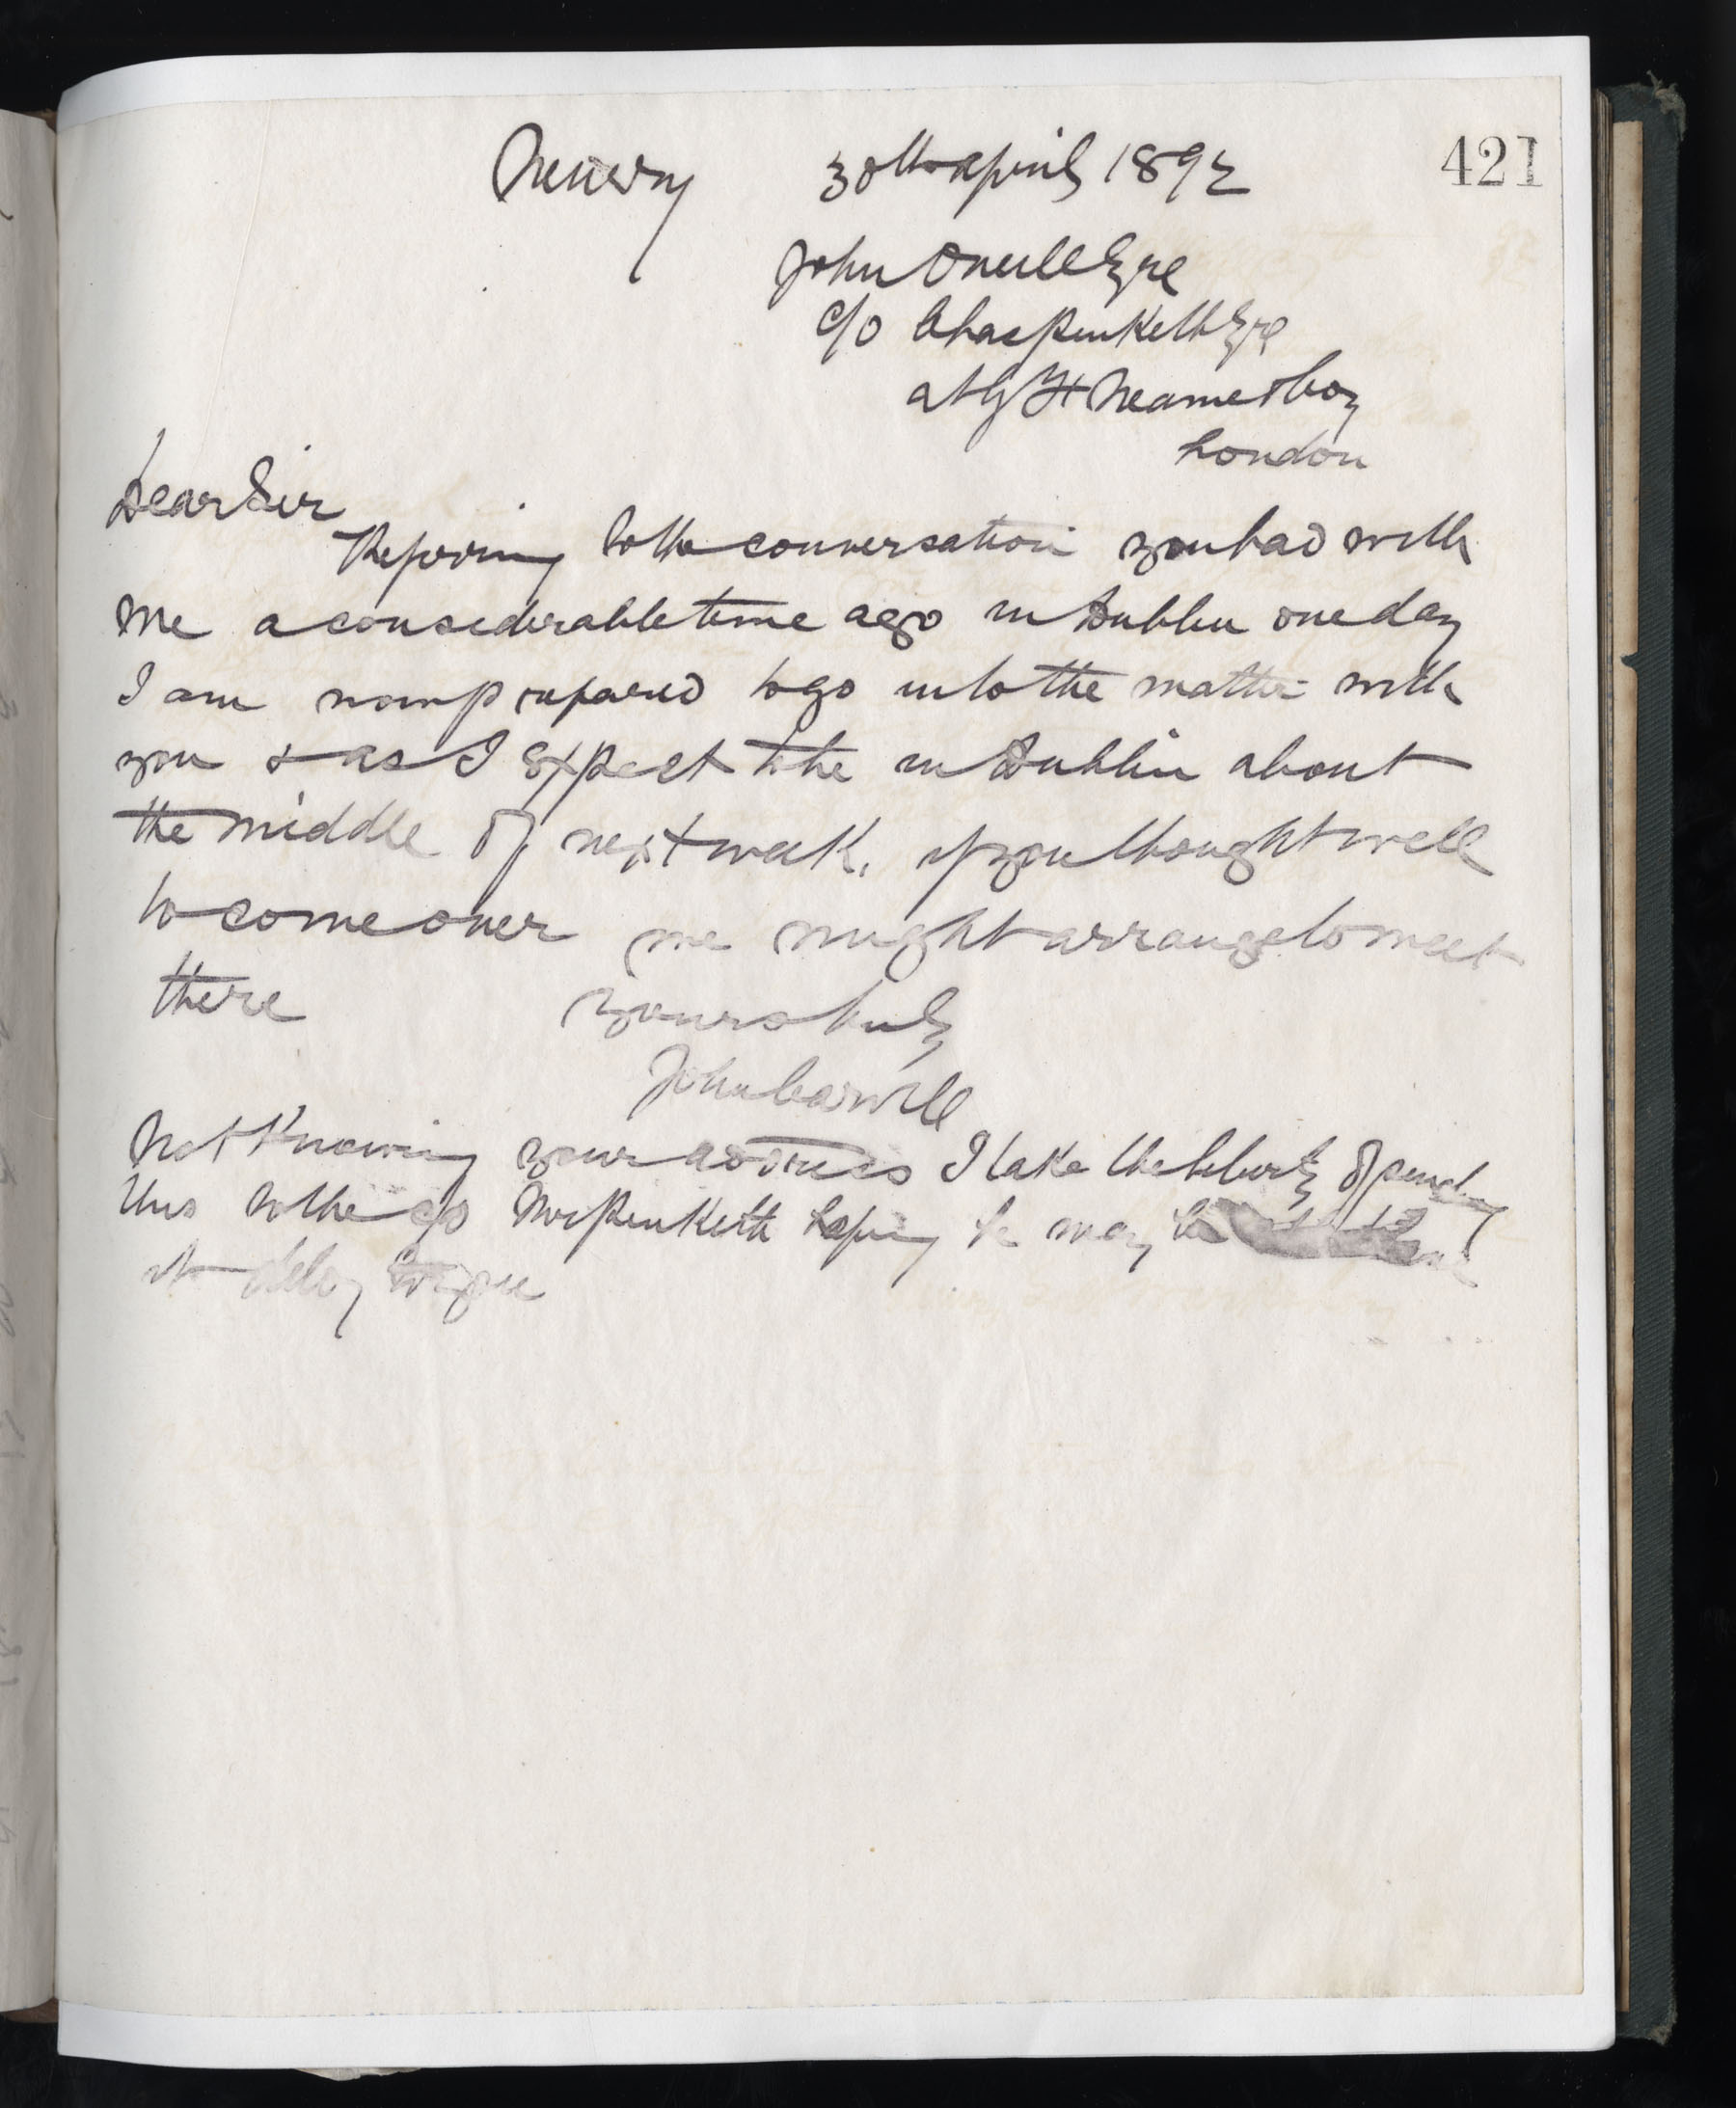 421
Newry 30th April 1892
John O'neill Esqe
c/o Chas Penketh Esqe
at G H Neame & Coy
London
Dear Sir
Refering to the conversation you had with
me a considerable time ago in Dublin one day
I am now prepared to go into the matter with
you & as I expect to be in Dublin about
the middle of next week, if you thought well
to come over we might arrange to meet
there Yours truly
John Carvill
Not Knowing your address I take the liberty of sending
this to the c/o Mr Penketh hoping he may be
it to you